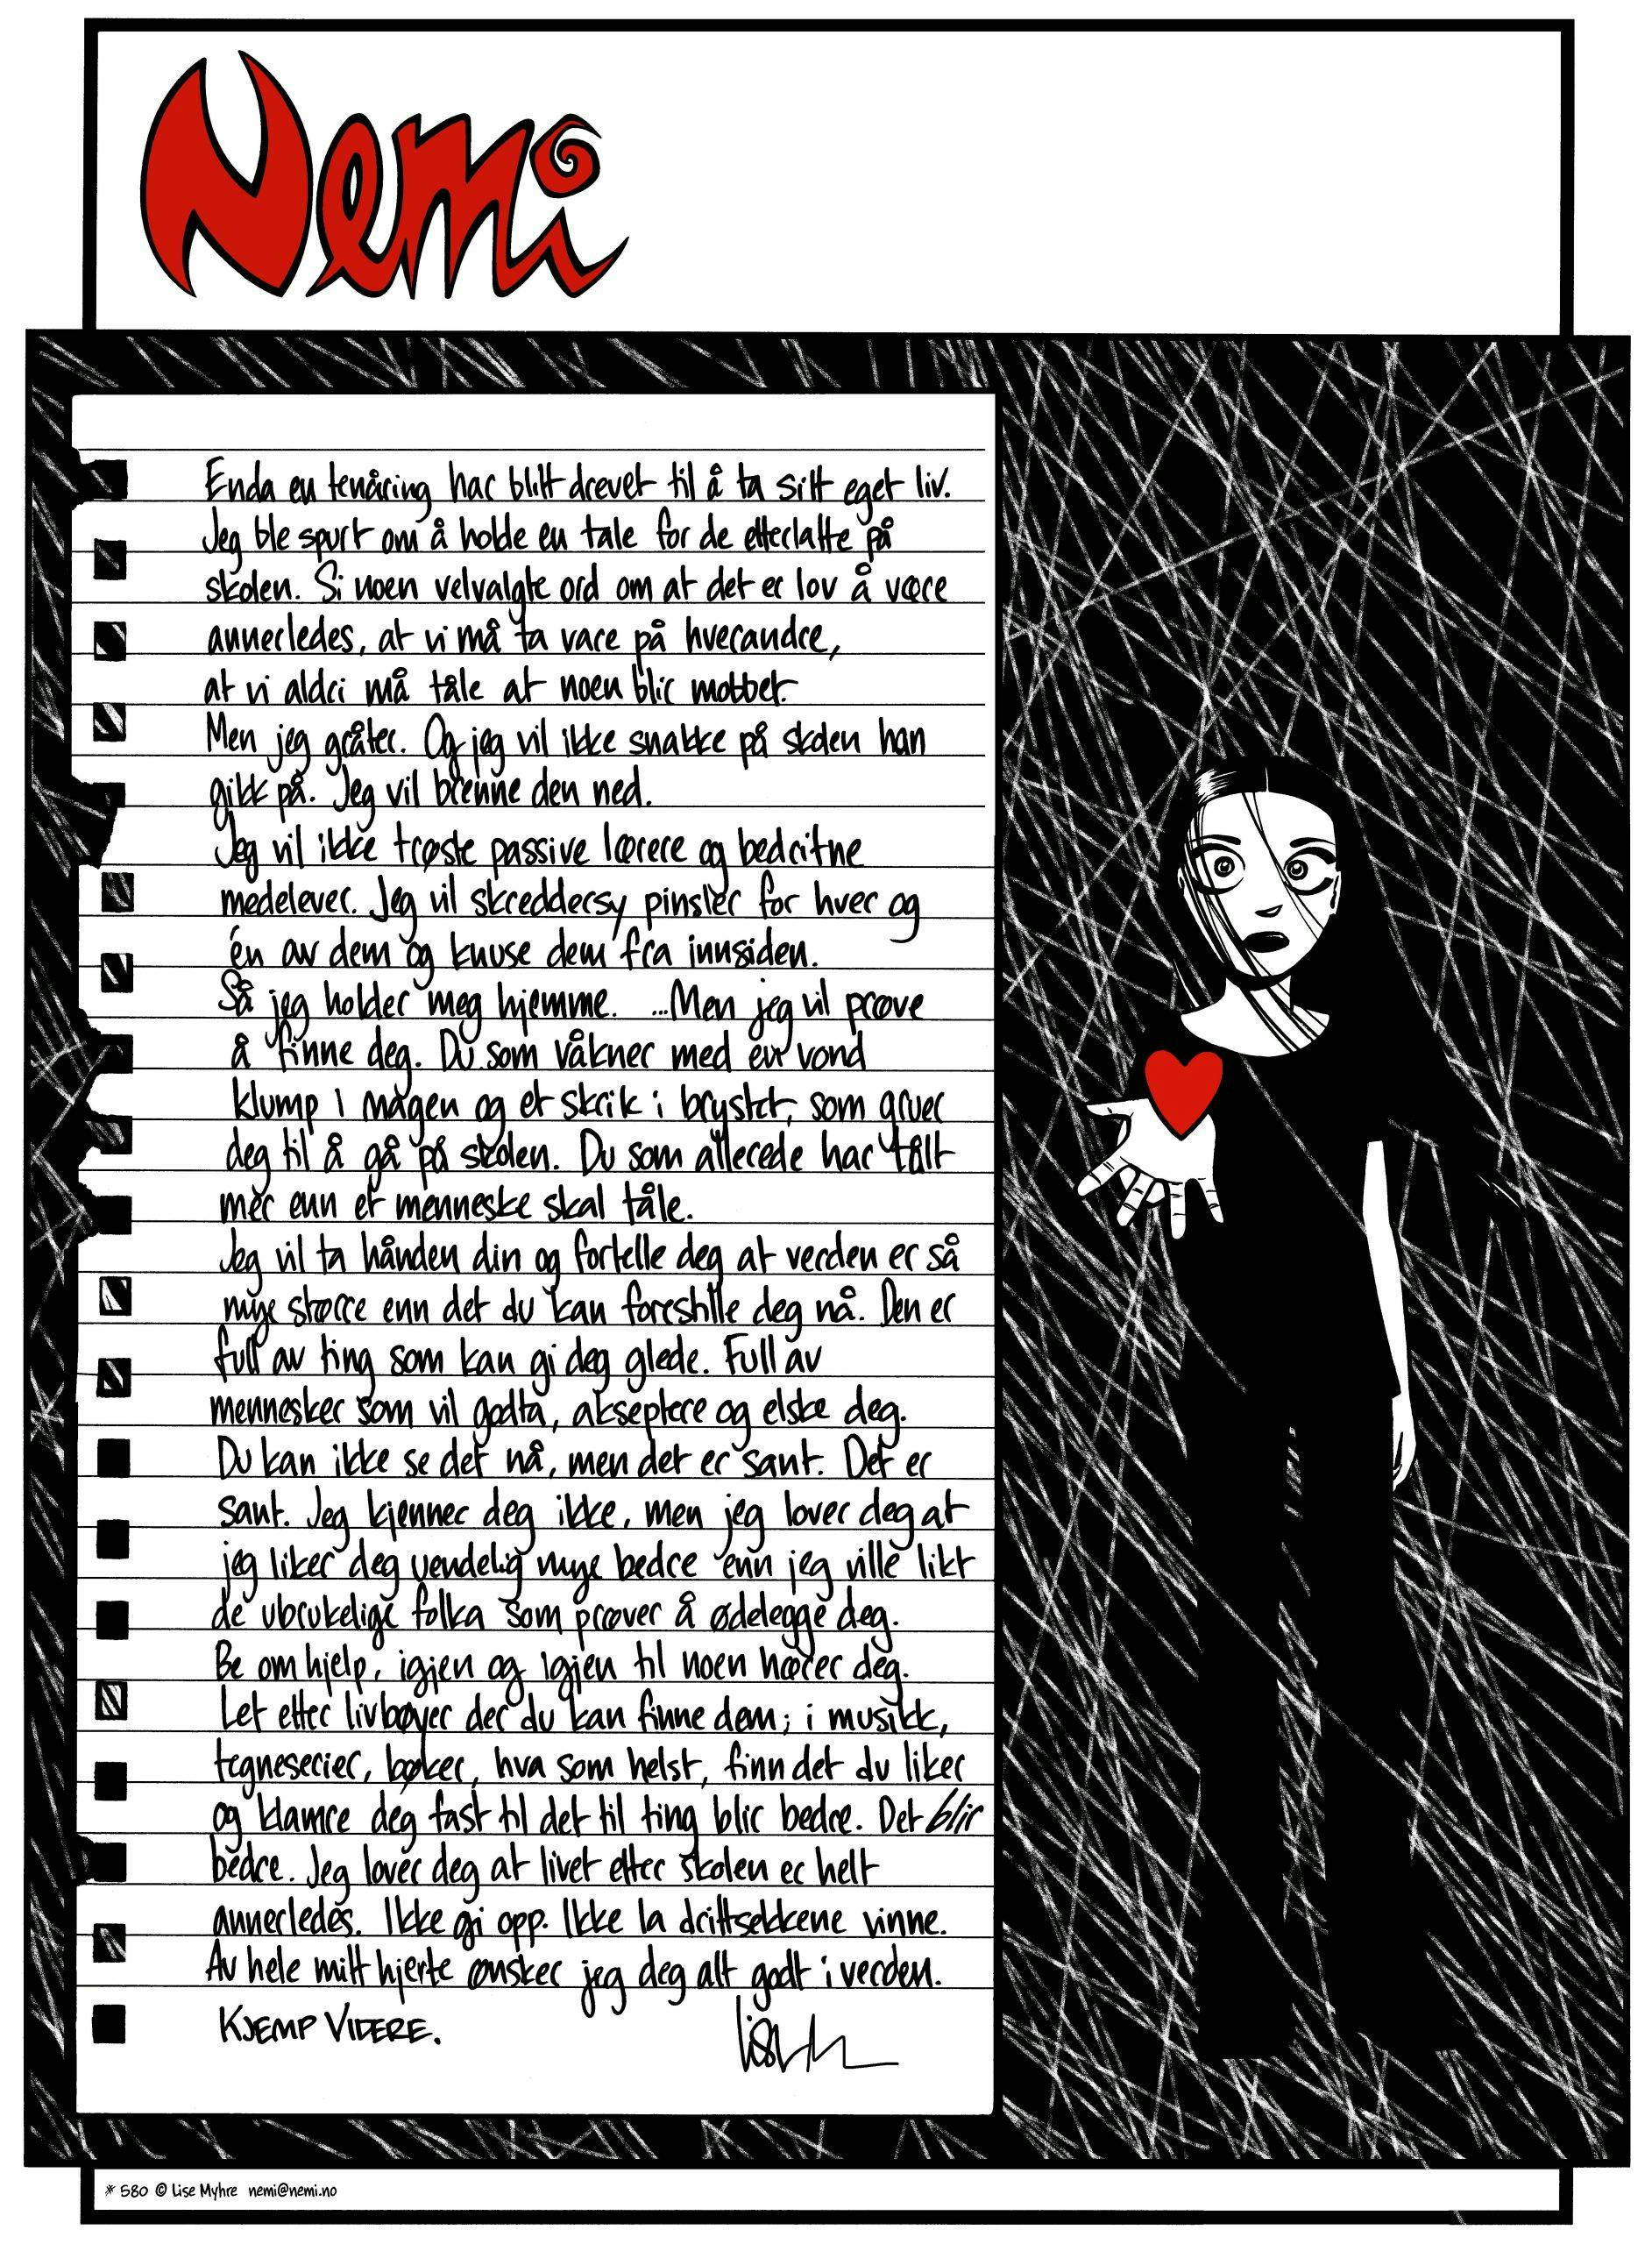 Nemi
Enda en tenåring har blitt drevet til å ta sitt eget liv.
Jeg ble spurt om å holde en tale for de etterlatte på
skolen. Si noen velvalgte ord om at det er lov å være
annerledes, at vi må ta vare på hverandre,
at vi aldri må tåle at noen blir mobbet.
Men jeg gråter. Og jeg vil ikke snakke på skolen han
gikk på. Jeg vil brenne den ned.
Jeg vil ikke trøste passive lærere og bedritne
medelever. Jeg vil skreddersy pinsler for hver og
én av dem og knuse dem fra innsiden.
Så jeg holder meg hjemme. ...Men jeg vil prøve
å finne deg. Du som våkner med en vond
klump i magen og et skrik i brystet, som gruer
deg til å gå på skolen. Du som allerede har tålt
mer enn et menneske skal tåle.
Jeg vil ta hånden din og fortelle deg at verden er så
mye større enn det du kan forestille deg nå. Den er
full av ting som kan gi deg glede. Full av
mennesker som vil godta, akseptere og elske deg.
Du kan ikke se det nå, men det er sant. Det er
sant. Jeg kjenner deg ikke, men jeg lover deg at
jeg liker deg uendelig mye bedre enn jeg ville likt
de ubrukelige folka som prøver å ødelegge deg.
Be om hjelp, igjen og igjen til noen hører deg.
Let etter livbøyer der du kan finne dem; i musikk,
tegneserier, bøker, hva som helst, finn det du liker
og klamre deg fast til det til ting blir bedre. Det blir
bedre. Jeg lover deg at livet etter skolen er helt
annerledes. Ikke gi opp. Ikke la drittsekkene vinne.
Av hele mitt hjerte ønsker jeg deg alt godt i verden.
KJEMP VIDERE.
# 580 © Lise Myhre nemi@nemi.no